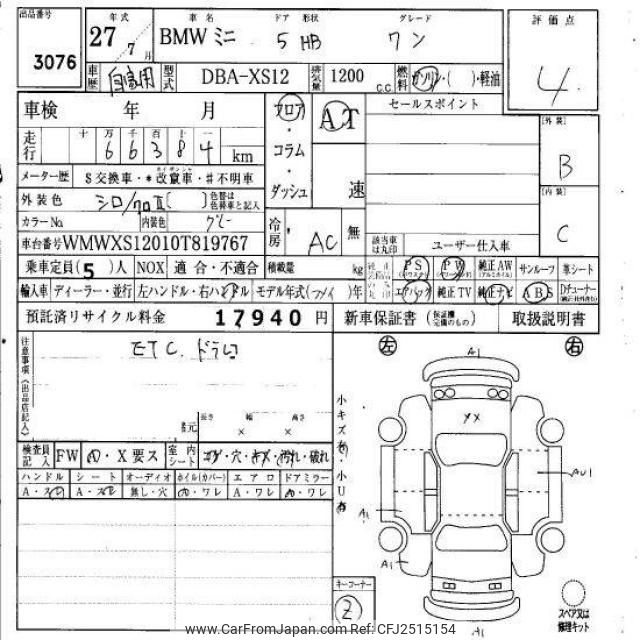 出品番号 年式 車名 ドア 形状 グレード 評価点
3076 27年 7月 BMW ミニ 5 HB ワン 4
車歴 自家用 型式 DBA-XS12 排気量 1200 c.c. 燃料 ガソリン・( )・軽油
車検 年 月 フロア・コラム・ダッシュ AT 速 セールスポイント
走行 十 万 千 百 十 一 [外装]
6 6 3 8 4 km B
メーター歴 $交換車・*改竄車・#不明車 [内装]
外装色 シロ/クロⅡ( ) 色替は色替車と記入 C
カラーNo. 内装色 グレー 冷房 AC 無
車台番号 WMWXS12010T819767 該当車は丸印 ユーザー仕入車
乗車定員(5)人 NOX 適合・不適合 積載量 kg 純正品のみ丸印 PS PW 純正AW サンルーフ 革シート
輸入車 ディーラー・並行 左ハンドル・右ハンドル モデル年式( )年 エアバック 純正TV 純正ナビ ABS Dチューナー
預託済リサイクル料金 17940 円 新車保証書 (保証継完備のもの) 取扱説明書
注意事項(出品店記入) ETC. ドラレコ 左 右
A1
小キズ有・小U有
XX
諸元 長さ × 幅 × 高さ
検査員記入 FW A・X要ス 室内シート コゲ・穴・キズ・汚れ・破れ
AU1
ハンドル シート オーディオ ホイル(カバー) エアロ ドアミラー
A・スレ A・スレ 無し・穴 A・ワレ A・ワレ A・ワレ
A1
A1
キーコーナー
2
スペア又は修理キット
A1
www.CarFromJapan.com Ref: CFJ2515154